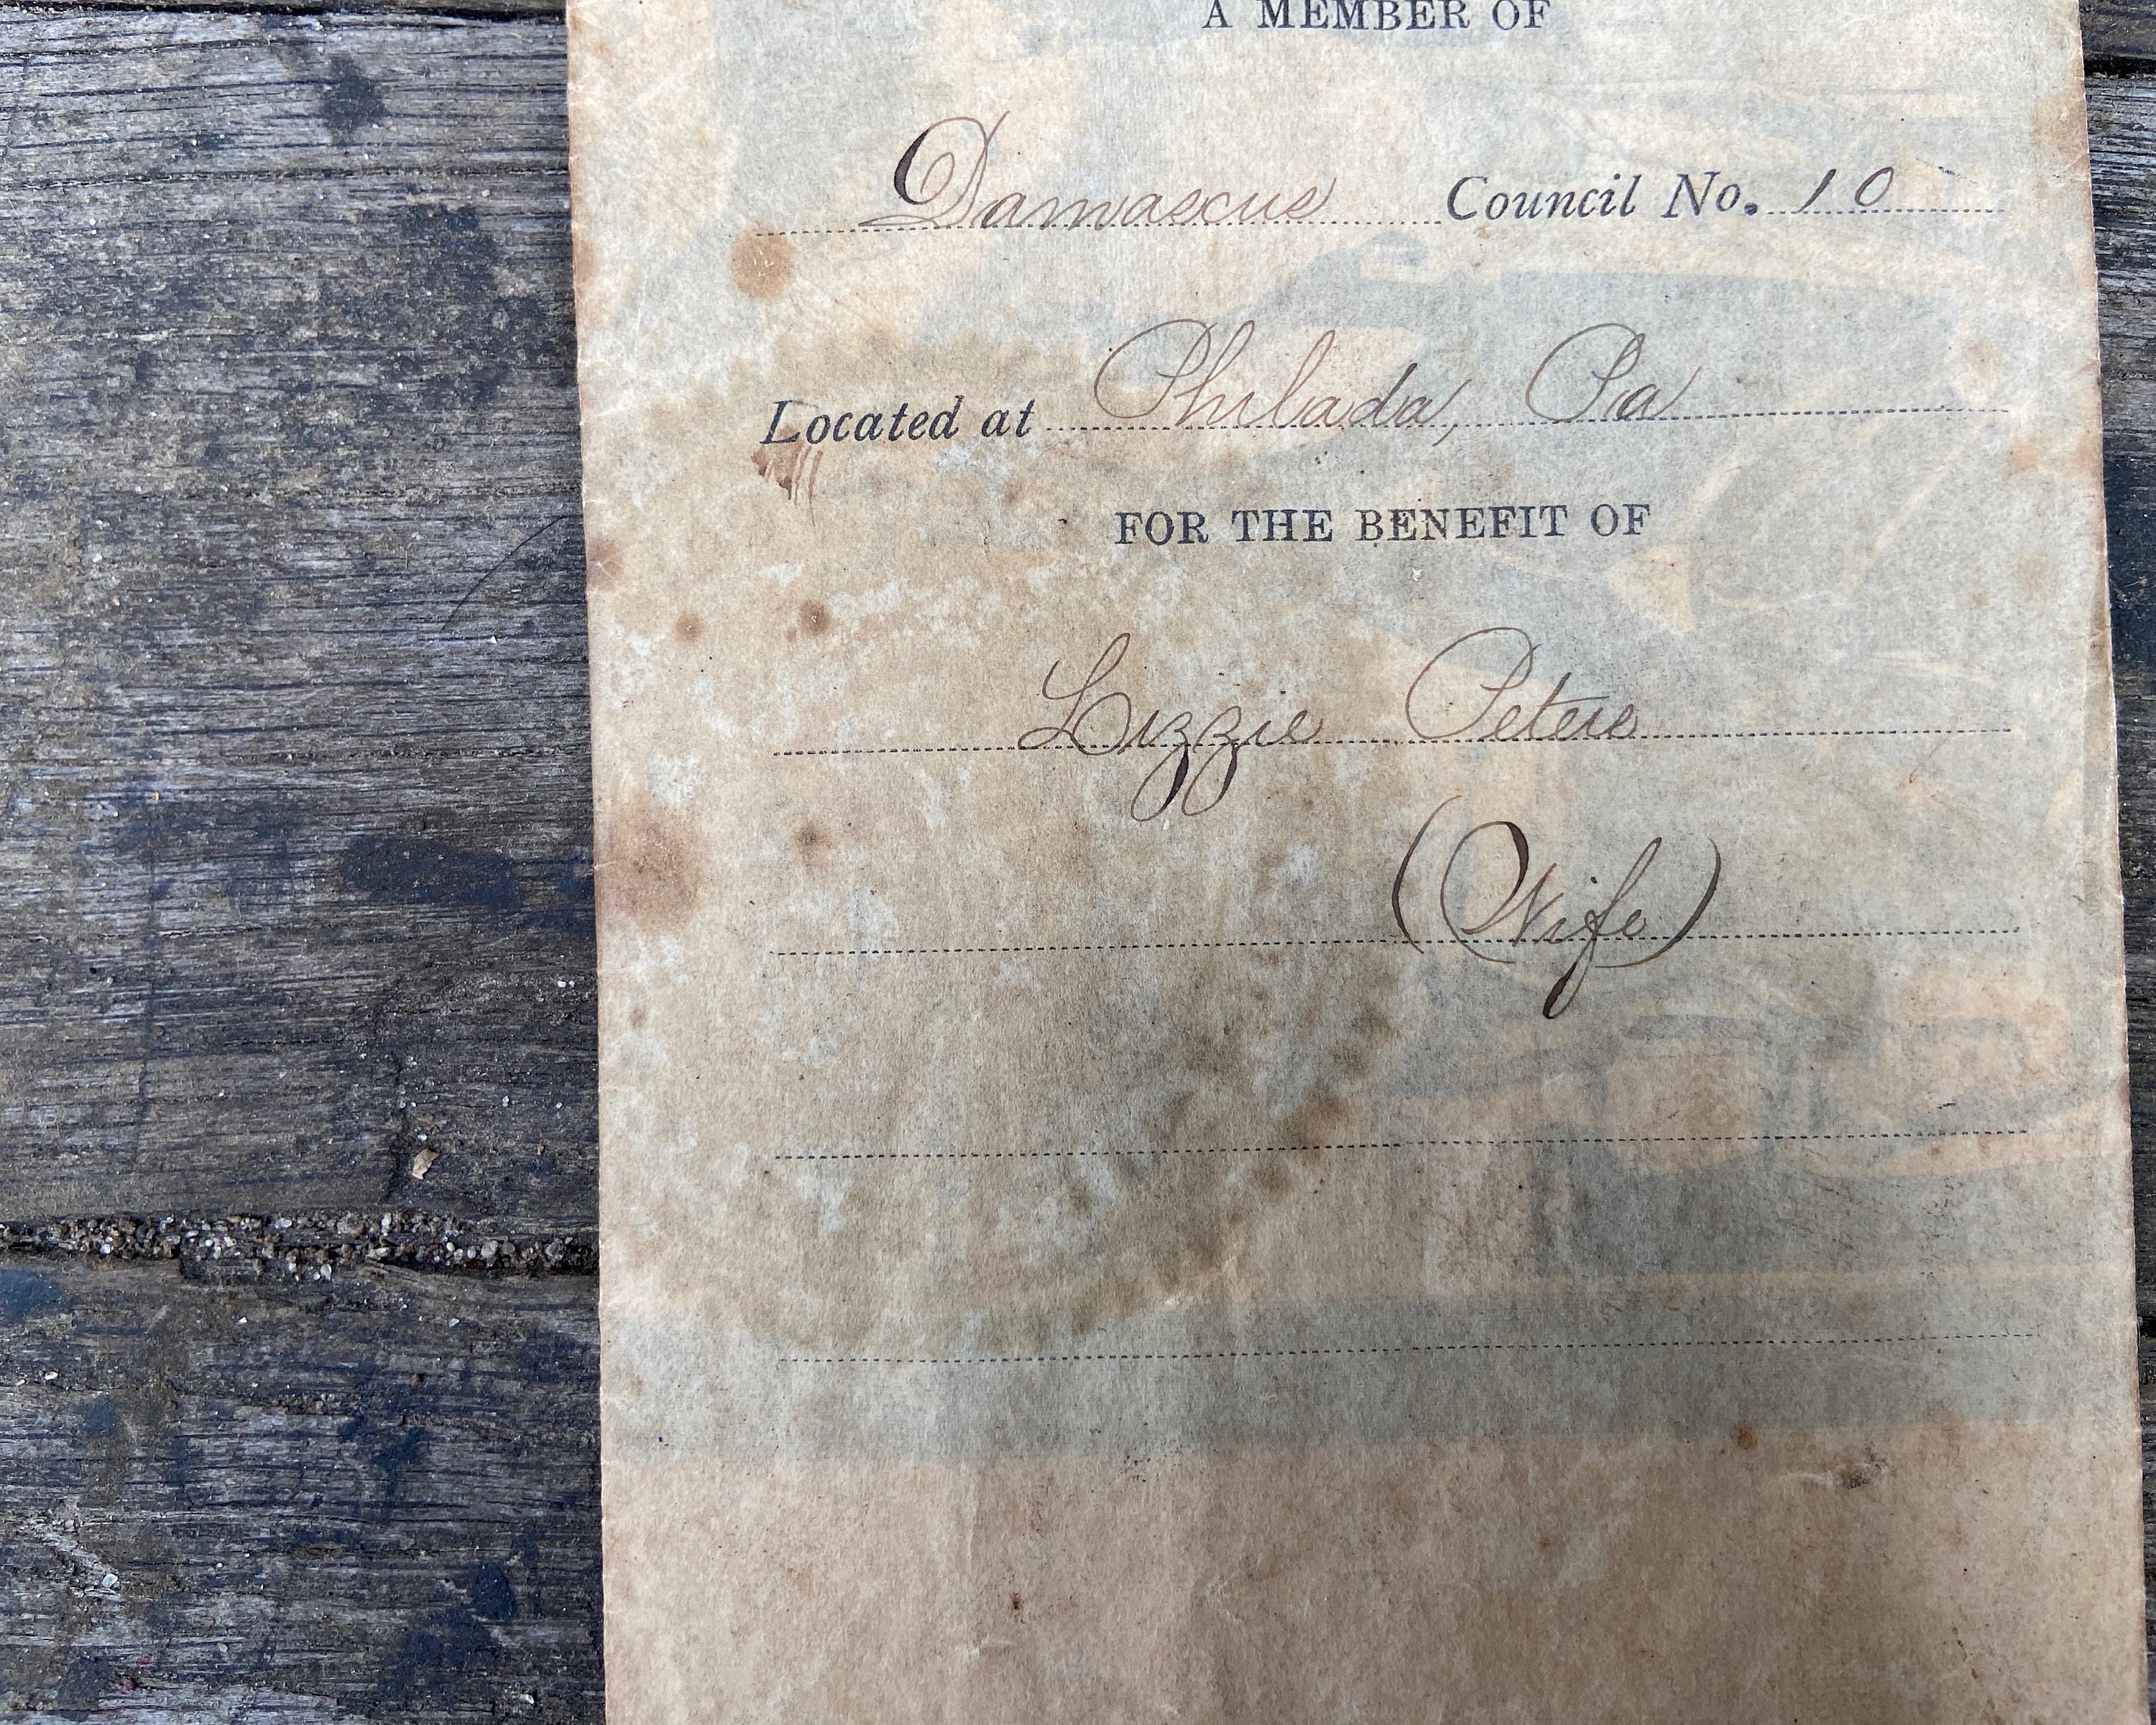 A MEMBER OF
Damascus Council No. 10
Located at Philada, Pa
FOR THE BENEFIT OF
Lizzie Peters
(Wife)